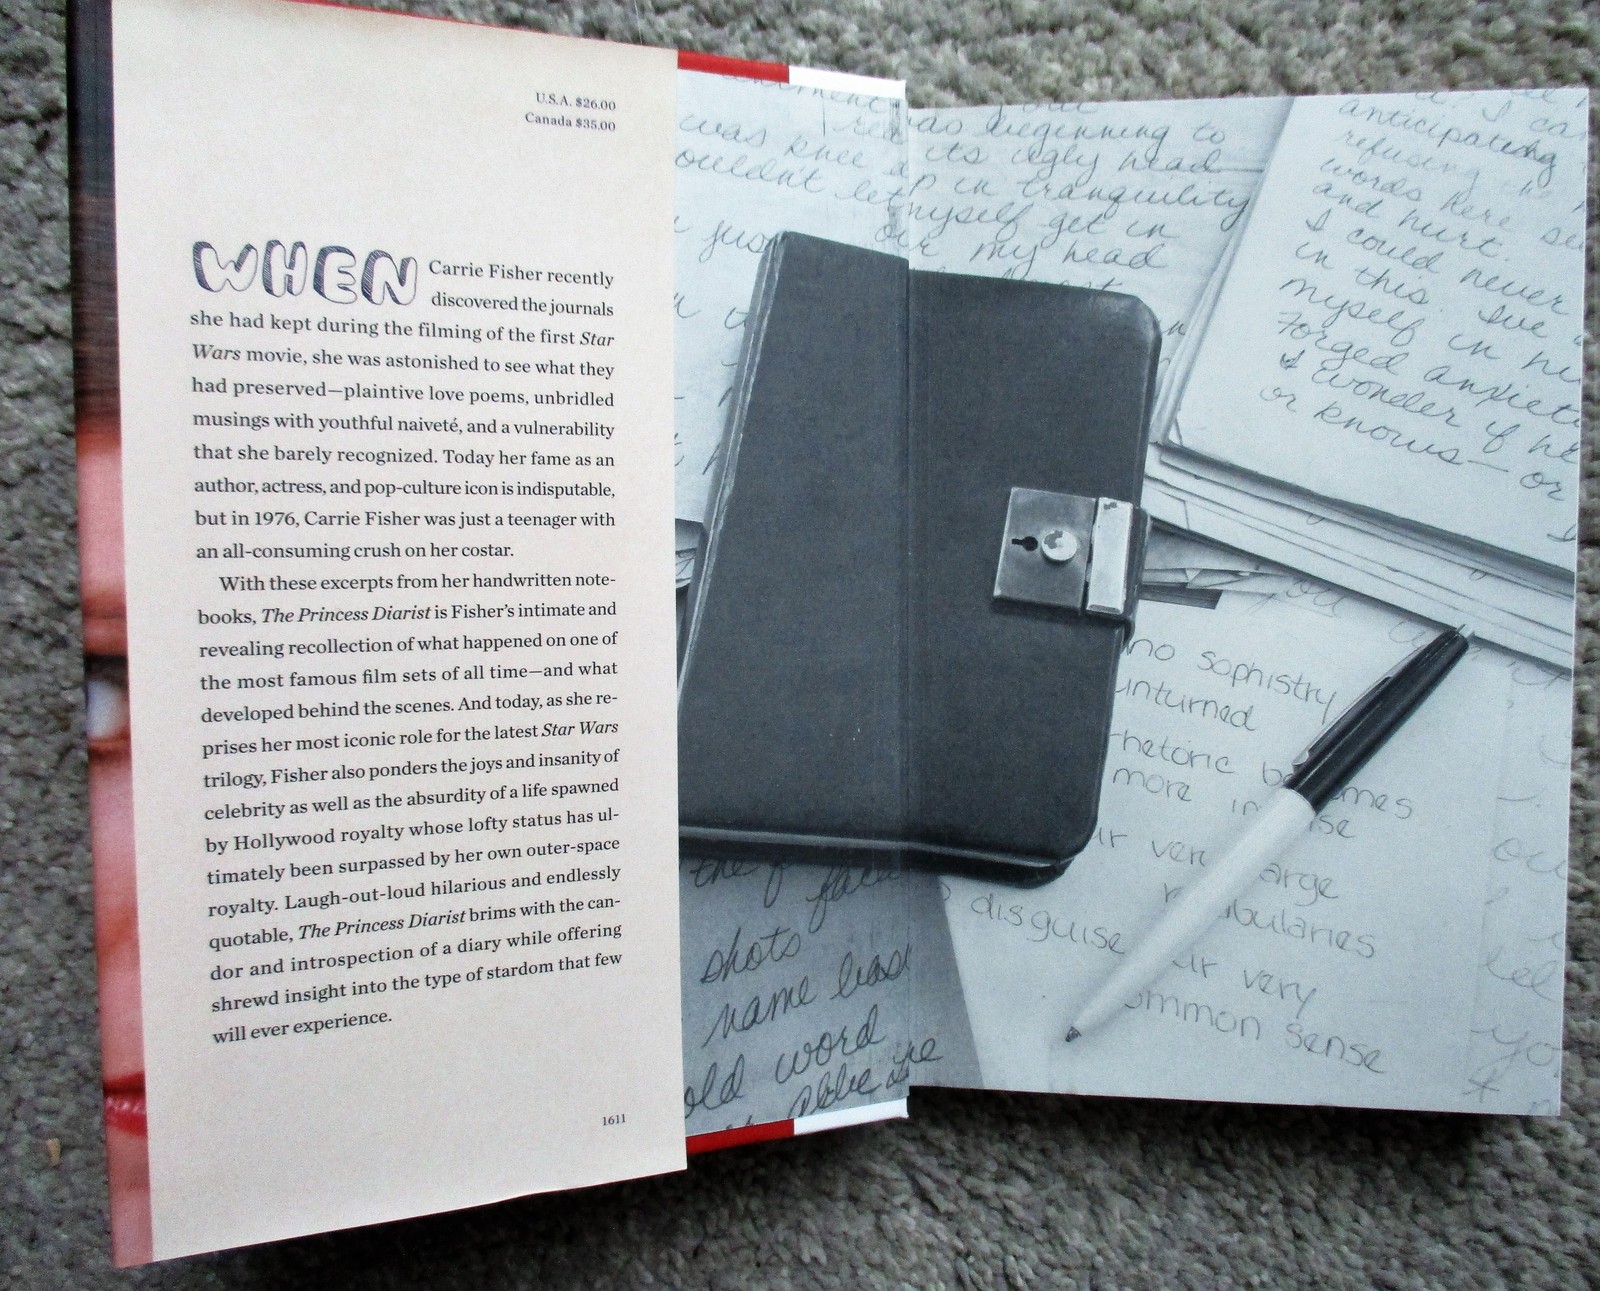 U.S.A. $26.00
Canada $35.00
WHEN Carrie Fisher recently
discovered the journals
she had kept during the filming of the first Star
Wars movie, she was astonished to see what they
had preserved—plaintive love poems, unbridled
musings with youthful naiveté, and a vulnerability
that she barely recognized. Today her fame as an
author, actress, and pop-culture icon is indisputable,
but in 1976, Carrie Fisher was just a teenager with
an all-consuming crush on her costar.
With these excerpts from her handwritten note-
books, The Princess Diarist is Fisher's intimate and
revealing recollection of what happened on one of
the most famous film sets of all time—and what
developed behind the scenes. And today, as she re-
prises her most iconic role for the latest Star Wars
trilogy, Fisher also ponders the joys and insanity of
celebrity as well as the absurdity of a life spawned
by Hollywood royalty whose lofty status has ul-
timately been surpassed by her own outer-space
royalty. Laugh-out-loud hilarious and endlessly
quotable, The Princess Diarist brims with the can-
dor and introspection of a diary while offering
shrewd insight into the type of stardom that few
will ever experience.
1611
was knee
ouldn't let
jus
beginning to
its ugly head
in tranquility
myself get in
my head
anticipating
refusing the
words here
and hurt.
I could never
in this. I've
myself in
Forged anxiet
I wonder if he
or knows— or
no sophistry
unturned
rhetoric
more in
ur very large
disguise
ur very
ommon sense
the
shots
name
old word